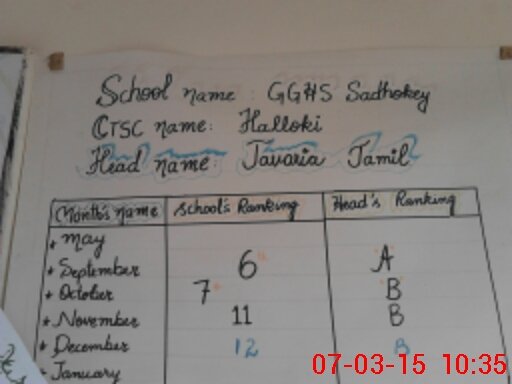 School name : GGHS Sadhokey
CTSC name: Halloki
Head name Javaria Jamil
Month's name School's Ranking Head's Ranking
* May
* September 6th A
* October 7th B
* November 11 B
* December 12 B
* January
07-03-15 10:35